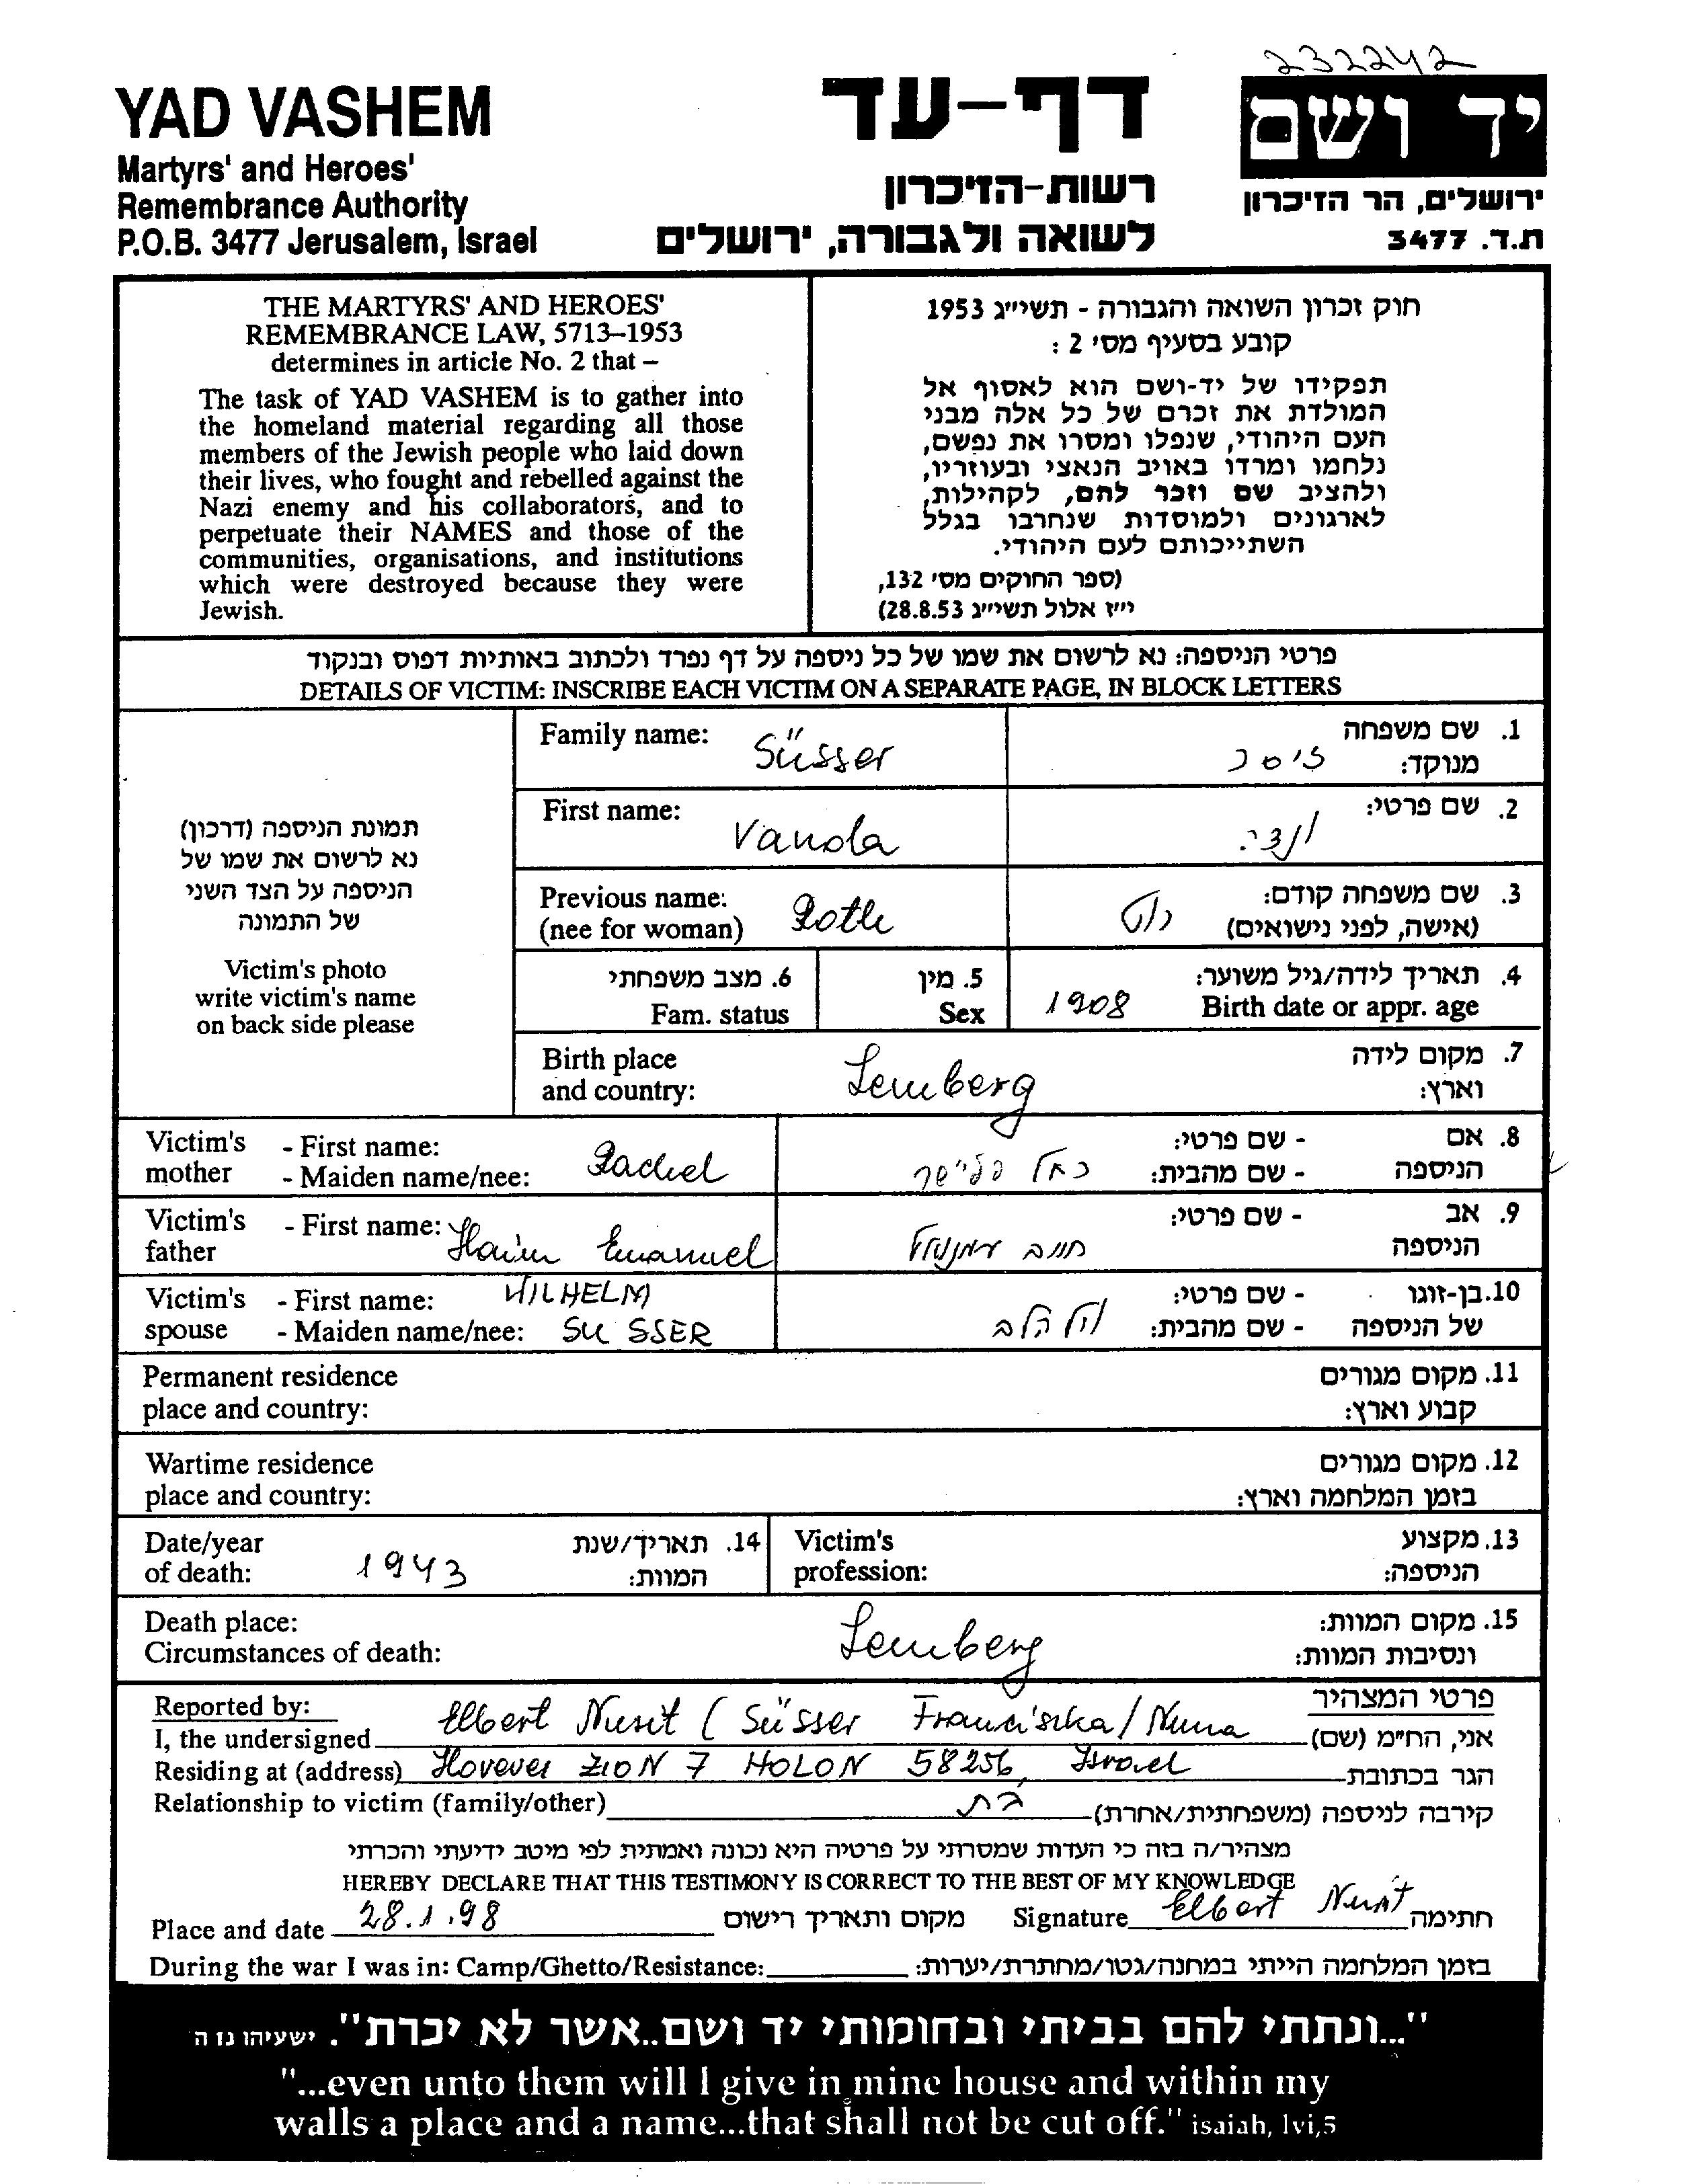 232242
YAD VASHEM
Martyrs' and Heroes'
Remembrance Authority
P.O.B. 3477 Jerusalem, Israel
דף-עד
רשות-הזיכרון
לשואה ולגבורה, ירושלים
יד ושם
ירושלים, הר הזיכרון
ת.ד. 3477
THE MARTYRS' AND HEROES'
REMEMBRANCE LAW, 5713–1953
determines in article No. 2 that –
The task of YAD VASHEM is to gather into
the homeland material regarding all those
members of the Jewish people who laid down
their lives, who fought and rebelled against the
Nazi enemy and his collaborators, and to
perpetuate their NAMES and those of the
communities, organisations, and institutions
which were destroyed because they were
Jewish.
חוק זכרון השואה והגבורה - תשי״ג 1953
קובע בסעיף מס׳ 2 :
תפקידו של יד-ושם הוא לאסוף אל
המולדת את זכרם של כל אלה מבני
העם היהודי, שנפלו ומסרו את נפשם,
נלחמו ומרדו באויב הנאצי ובעוזריו,
ולהציב שם וזכר להם, לקהילות,
לארגונים ולמוסדות שנחרבו בגלל
השתייכותם לעם היהודי.
(ספר החוקים מס׳ 132,
י״ז אלול תשי״ג 28.8.53)
פרטי הניספה: נא לרשום את שמו של כל ניספה על דף נפרד ולכתוב באותיות דפוס ובנקוד
DETAILS OF VICTIM: INSCRIBE EACH VICTIM ON A SEPARATE PAGE, IN BLOCK LETTERS
תמונת הניספה (דרכון)
נא לרשום את שמו של
הניספה על הצד השני
של התמונה
Victim's photo
write victim's name
on back side please
Family name: Süsser
1. שם משפחה
מנוקד: זיסר
First name: Vanda
2. שם פרטי: ונדה
Previous name: Roth
(nee for woman)
3. שם משפחה קודם: רוט
(אישה, לפני נישואים)
6. מצב משפחתי
Fam. status
5. מין
Sex
4. תאריך לידה/גיל משוער:
Birth date or appr. age 1908
Birth place
and country: Lemberg
7. מקום לידה
וארץ:
Victim's mother - First name: Rachel
- Maiden name/nee:
8. אם הניספה - שם פרטי: רחל
- שם מהבית:
Victim's father - First name: Haim Emanuel
9. אב הניספה - שם פרטי: חיים עמנואל
Victim's spouse - First name: WILHELM
- Maiden name/nee: SUSSER
10. בן-זוגו של הניספה - שם פרטי:
- שם מהבית: וילהלם
Permanent residence
place and country:
11. מקום מגורים
קבוע וארץ:
Wartime residence
place and country:
12. מקום מגורים
בזמן המלחמה וארץ:
Date/year
of death: 1943
14. תאריך/שנת
המוות:
Victim's
profession:
13. מקצוע
הניספה:
Death place: Lemberg
Circumstances of death:
15. מקום המוות:
ונסיבות המוות:
Reported by:
פרטי המצהיר
I, the undersigned Elbert Nurit (Süsser Franciszka/Nuna אני, הח״מ (שם)
Residing at (address) Hovevei ZION 7 HOLON 58256, Israel הגר בכתובת
Relationship to victim (family/other) בת קירבה לניספה (משפחתית/אחרת)
מצהיר/ה בזה כי העדות שמסרתי על פרטיה היא נכונה ואמתית לפי מיטב ידיעתי והכרתי
HEREBY DECLARE THAT THIS TESTIMONY IS CORRECT TO THE BEST OF MY KNOWLEDGE
Place and date 28.1.98 מקום ותאריך רישום Signature Elbert Nurit חתימה
During the war I was in: Camp/Ghetto/Resistance: בזמן המלחמה הייתי במחנה/גטו/מחתרת/יערות:
"...ונתתי להם בביתי ובחומותי יד ושם..אשר לא יכרת". ישעיהו נו ה
"...even unto them will I give in mine house and within my
walls a place and a name...that shall not be cut off." isaiah, lvi,5